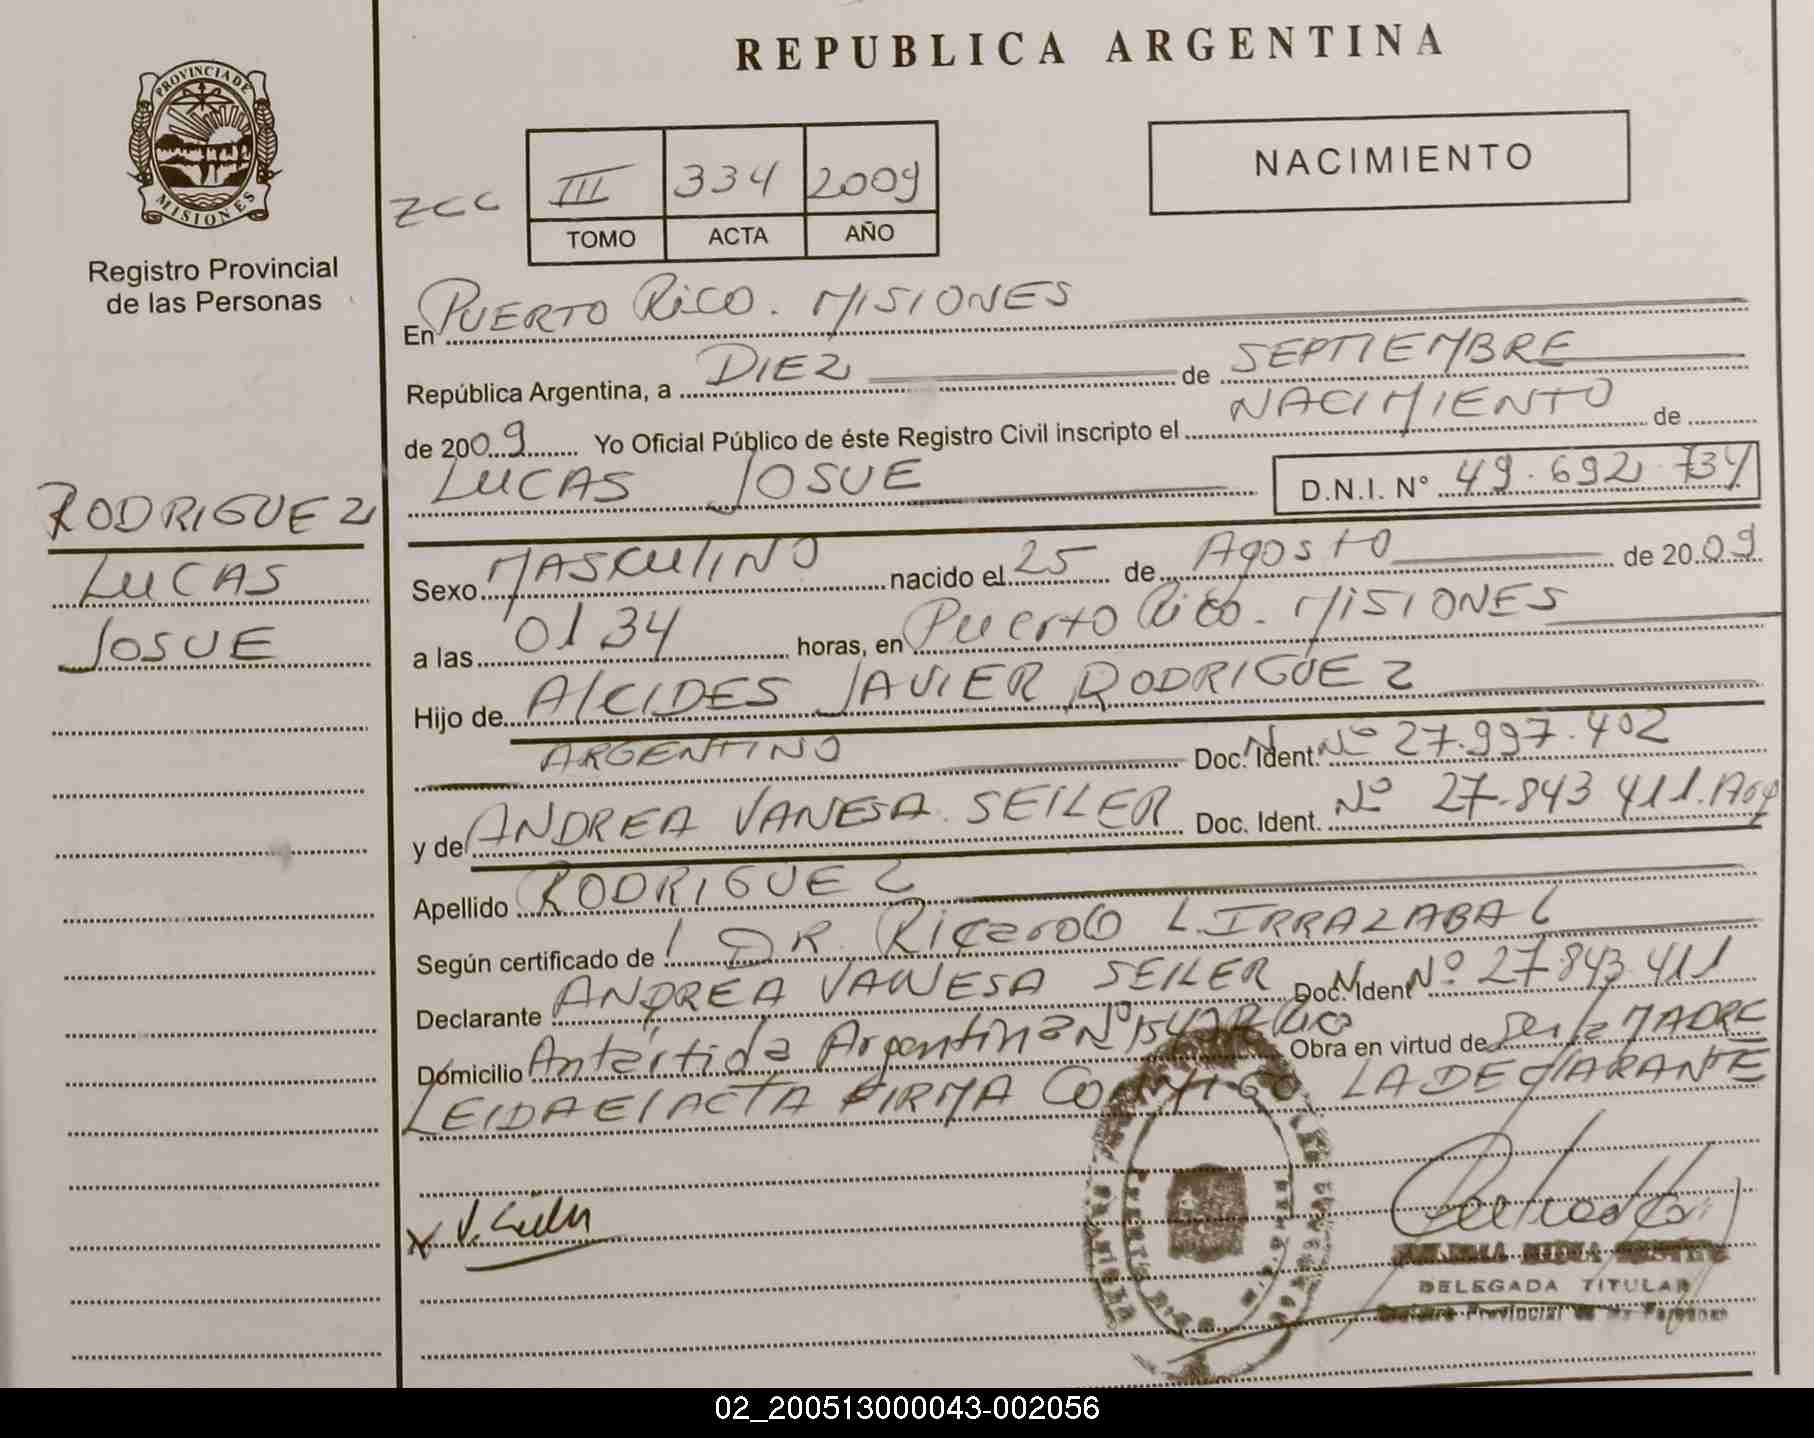 REPUBLICA ARGENTINA
PROVINCIA DE
MISIONES
Registro Provincial
de las Personas
NACIMIENTO
ZCC III 334 2009
TOMO ACTA AÑO
En PUERTO RICO. MISIONES
República Argentina, a DIEZ de SEPTIEMBRE
de 2009 Yo Oficial Público de éste Registro Civil inscripto el NACIMIENTO de
LUCAS JOSUE D.N.I. N° 49.692.734
RODRIGUEZ
LUCAS
JOSUE
Sexo MASCULINO nacido el 25 de Agosto de 2009
a las 01 34 horas, en Puerto Rico. MISIONES
Hijo de AlCIDES JAVIER RODRIGUEZ
ARGENTINO Doc. Ident. N° 27.997.402
y de ANDREA VANESA SEILER Doc. Ident. N° 27.843.411. Arg
Apellido RODRIGUEZ
Según certificado de DR. Ricardo L. IRRAZABAL
Declarante ANDREA VANESA SEILER Doc. Ident N° 27.843.411
Domicilio Antártida Argentina N° 1547 P. Rico Obra en virtud de Ser la MADRE
LEIDA El ACTA FIRMA CONMIGO LA DEClARANTE
X V. Seiler
DELEGADA TITULAR
Registro Provincial de las Personas
02_200513000043-002056